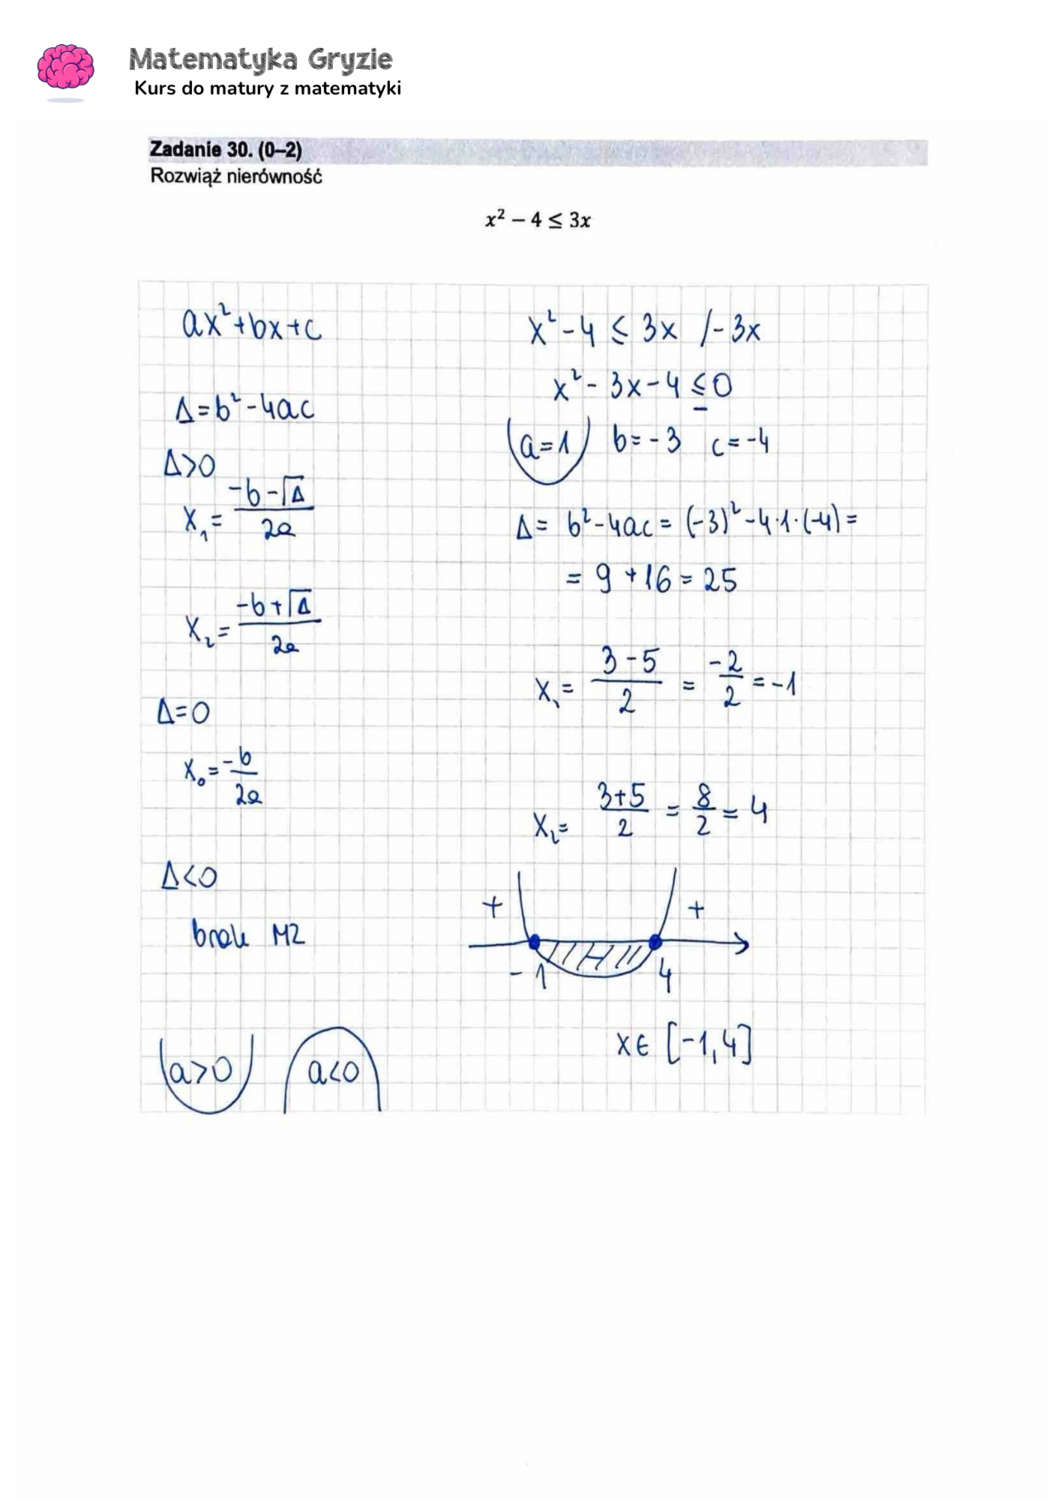 Matematyka Gryzie
Kurs do matury z matematyki
Zadanie 30. (0–2)
Rozwiąż nierówność
x² − 4 ≤ 3x
ax²+bx+c
Δ=b²-4ac
Δ>0
x₁= (-b-√Δ)/2a
x₂= (-b+√Δ)/2a
Δ=0
x₀= -b/2a
Δ<0
brak MZ
a>0 a<0
x²-4 ≤ 3x /-3x
x²-3x-4 ≤0
a=1 b=-3 c=-4
Δ= b²-4ac = (-3)²-4·1·(-4)=
= 9+16=25
x₁= (3-5)/2 = -2/2 = -1
x₂= (3+5)/2 = 8/2 = 4
+ +
-1 4
x∈ [-1,4]